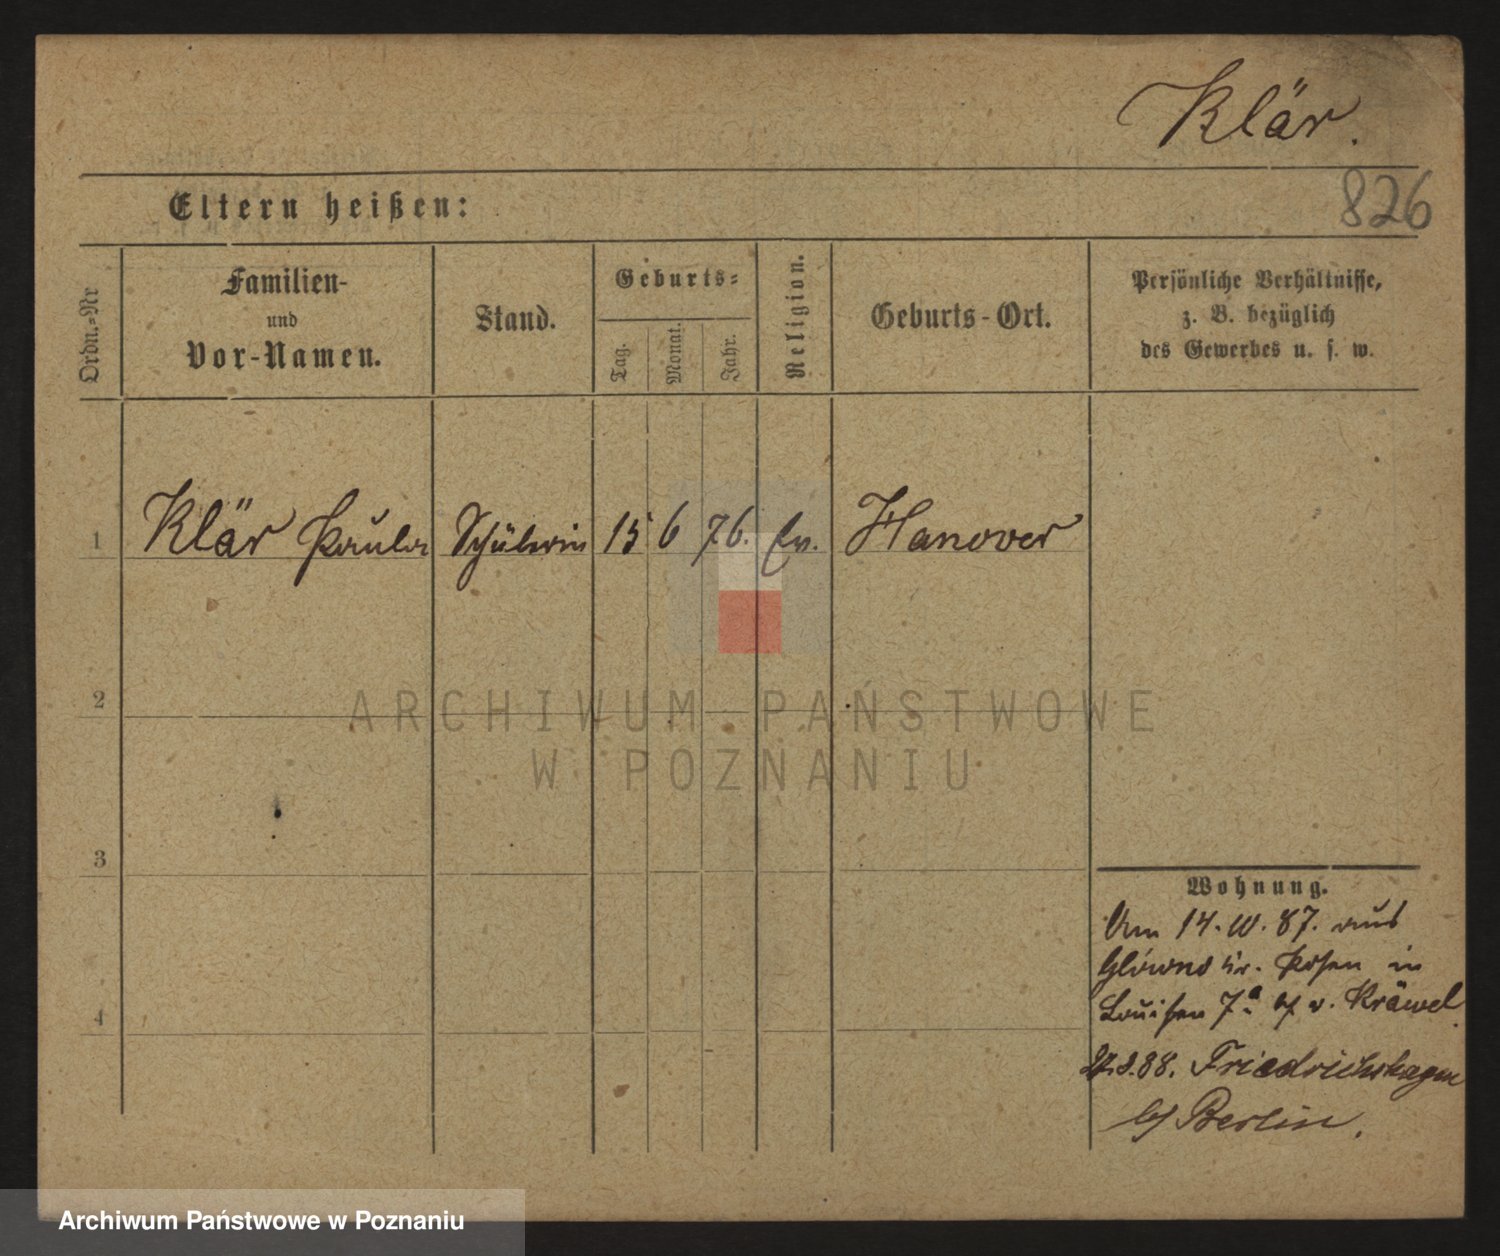 Klär.
826
Eltern heißen:
Ordn.-Nr
Familien-
und
Vor-Namen.
Stand.
Geburts-
Tag.
Monat.
Jahr.
Religion.
Geburts-Ort.
Persönliche Verhältnisse,
z. B. bezüglich
des Gewerbes u. s. w.
1 Klär Paula Schülerin 15 6 76. Ev. Hanover
2
3
4
Wohnung.
14. 10. 87. aus
Glówno Kr. Posen in
Louisen 7a b/ v. Kräwel.
88. Friedrichshagen
b/ Berlin.
ARCHIWUM PAŃSTWOWE
W POZNANIU
Archiwum Państwowe w Poznaniu